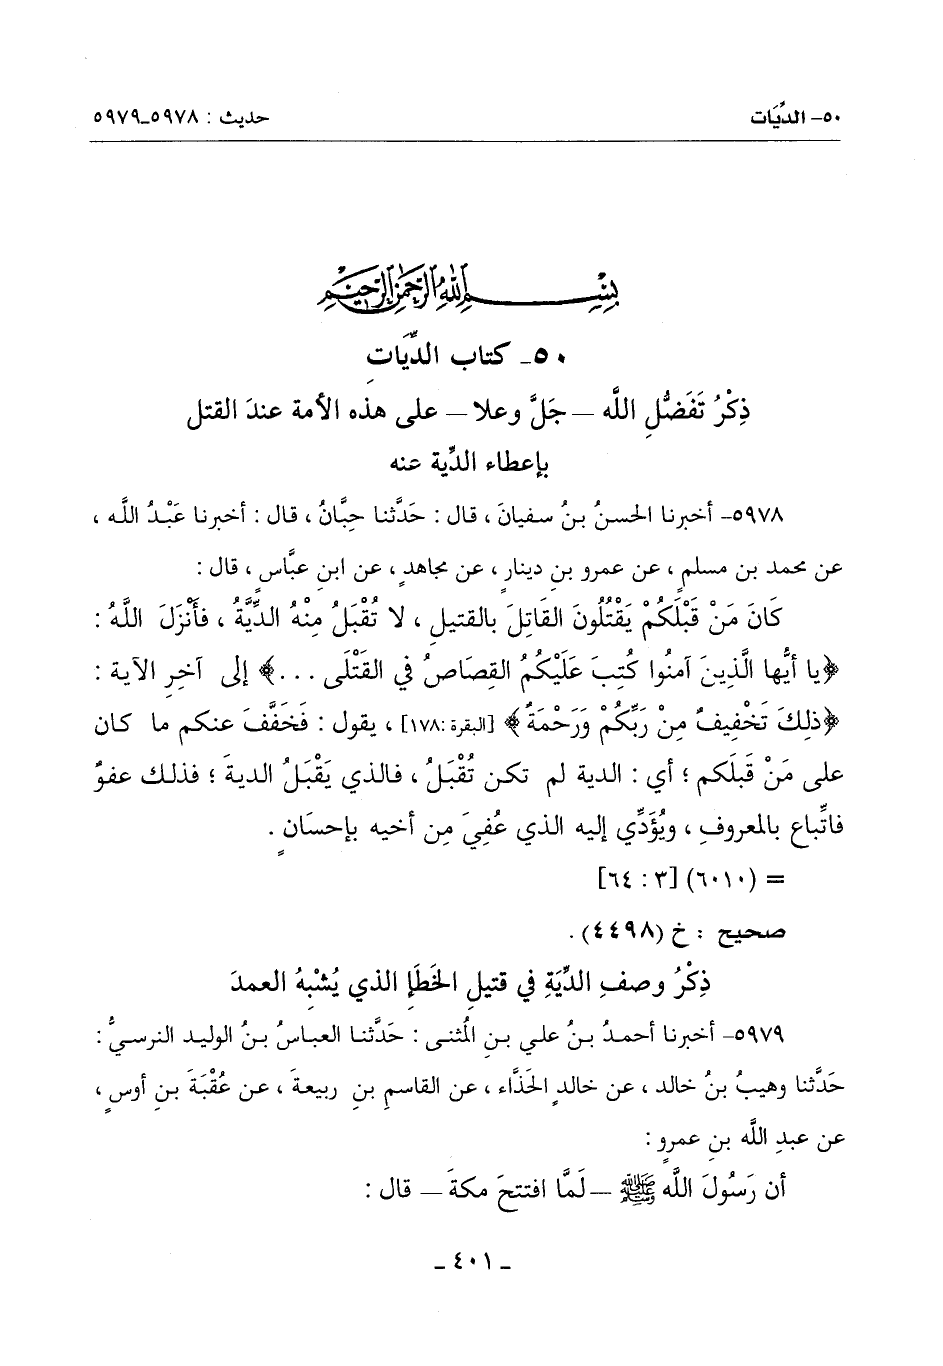 ٥٠- الدِّيَات
حديث : ٥٩٧٨-٥٩٧٩
بِسْمِ اللهِ الرَّحْمَنِ الرَّحِيمِ
٥٠- كتاب الدِّيَات
ذِكْرُ تَفَضُّلِ اللَّه – جَلَّ وعلا – على هذه الأمة عندَ القتل
بإعطاء الدِّيةِ عنه
٥٩٧٨- أخبرنا الحسنُ بنُ سفيانَ ، قال : حَدَّثنا حِبَّانُ ، قال : أخبرنا عَبْدُ اللَّه ،
عن محمد بن مسلمٍ ، عن عمرو بنِ دينارٍ ، عن مجاهدٍ ، عن ابنِ عبَّاسٍ ، قال :
كَانَ مَنْ قَبْلَكُمْ يَقْتُلُونَ القَاتِلَ بالقتيلِ ، لا تُقْبَلُ مِنْهُ الدِّيَّةُ ، فأَنْزَلَ اللَّهُ :
﴿يا أيُّها الَّذينَ آمنُوا كُتِبَ عَلَيْكُمُ القِصَاصُ في القَتْلَى ...﴾ إلى آخِرِ الآية :
﴿ذلِكَ تَخْفِيفٌ مِنْ رَبِّكُمْ وَرَحْمَةٌ﴾ [البقرة :١٧٨] ، يقول : فَخَفَّفَ عنكم ما كان
على مَنْ قَبلَكم ؛ أي : الدية لم تكن تُقْبَلُ ، فالذي يَقْبَلُ الديةَ ؛ فذلك عفوٌ
فاتِّباع بالمعروفِ ، ويُؤَدِّي إليه الذي عُفِيَ مِن أخيه بإحسَانٍ .
= (٦٠١٠) [٣ : ٦٤]
صحيح : خ (٤٤٩٨) .
ذِكْرُ وصفِ الدِّيَةِ في قتيلِ الخَطَإِ الذي يُشْبِهُ العمدَ
٥٩٧٩- أخبرنا أحمدُ بنُ علي بنِ المُثنى : حَدَّثنا العباسُ بنُ الوليد النرسيُّ :
حَدَّثنا وهيبُ بنُ خالد ، عن خالدٍ الحَذَّاء ، عن القاسمِ بنِ ربيعةَ ، عن عُقْبَةَ بنِ أوسٍ ،
عن عبدِ اللَّه بنِ عمرو :
أن رَسُولَ اللَّه ﷺ – لَمَّا افتتحَ مكةَ – قال :
- ٤٠١ -